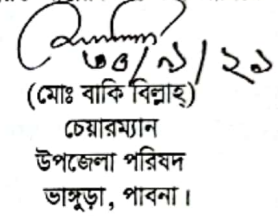 ৩০/৯/২১
(মোঃ বাকি বিল্লাহ্)
চেয়ারম্যান
উপজেলা পরিষদ
ভাঙ্গুড়া, পাবনা।